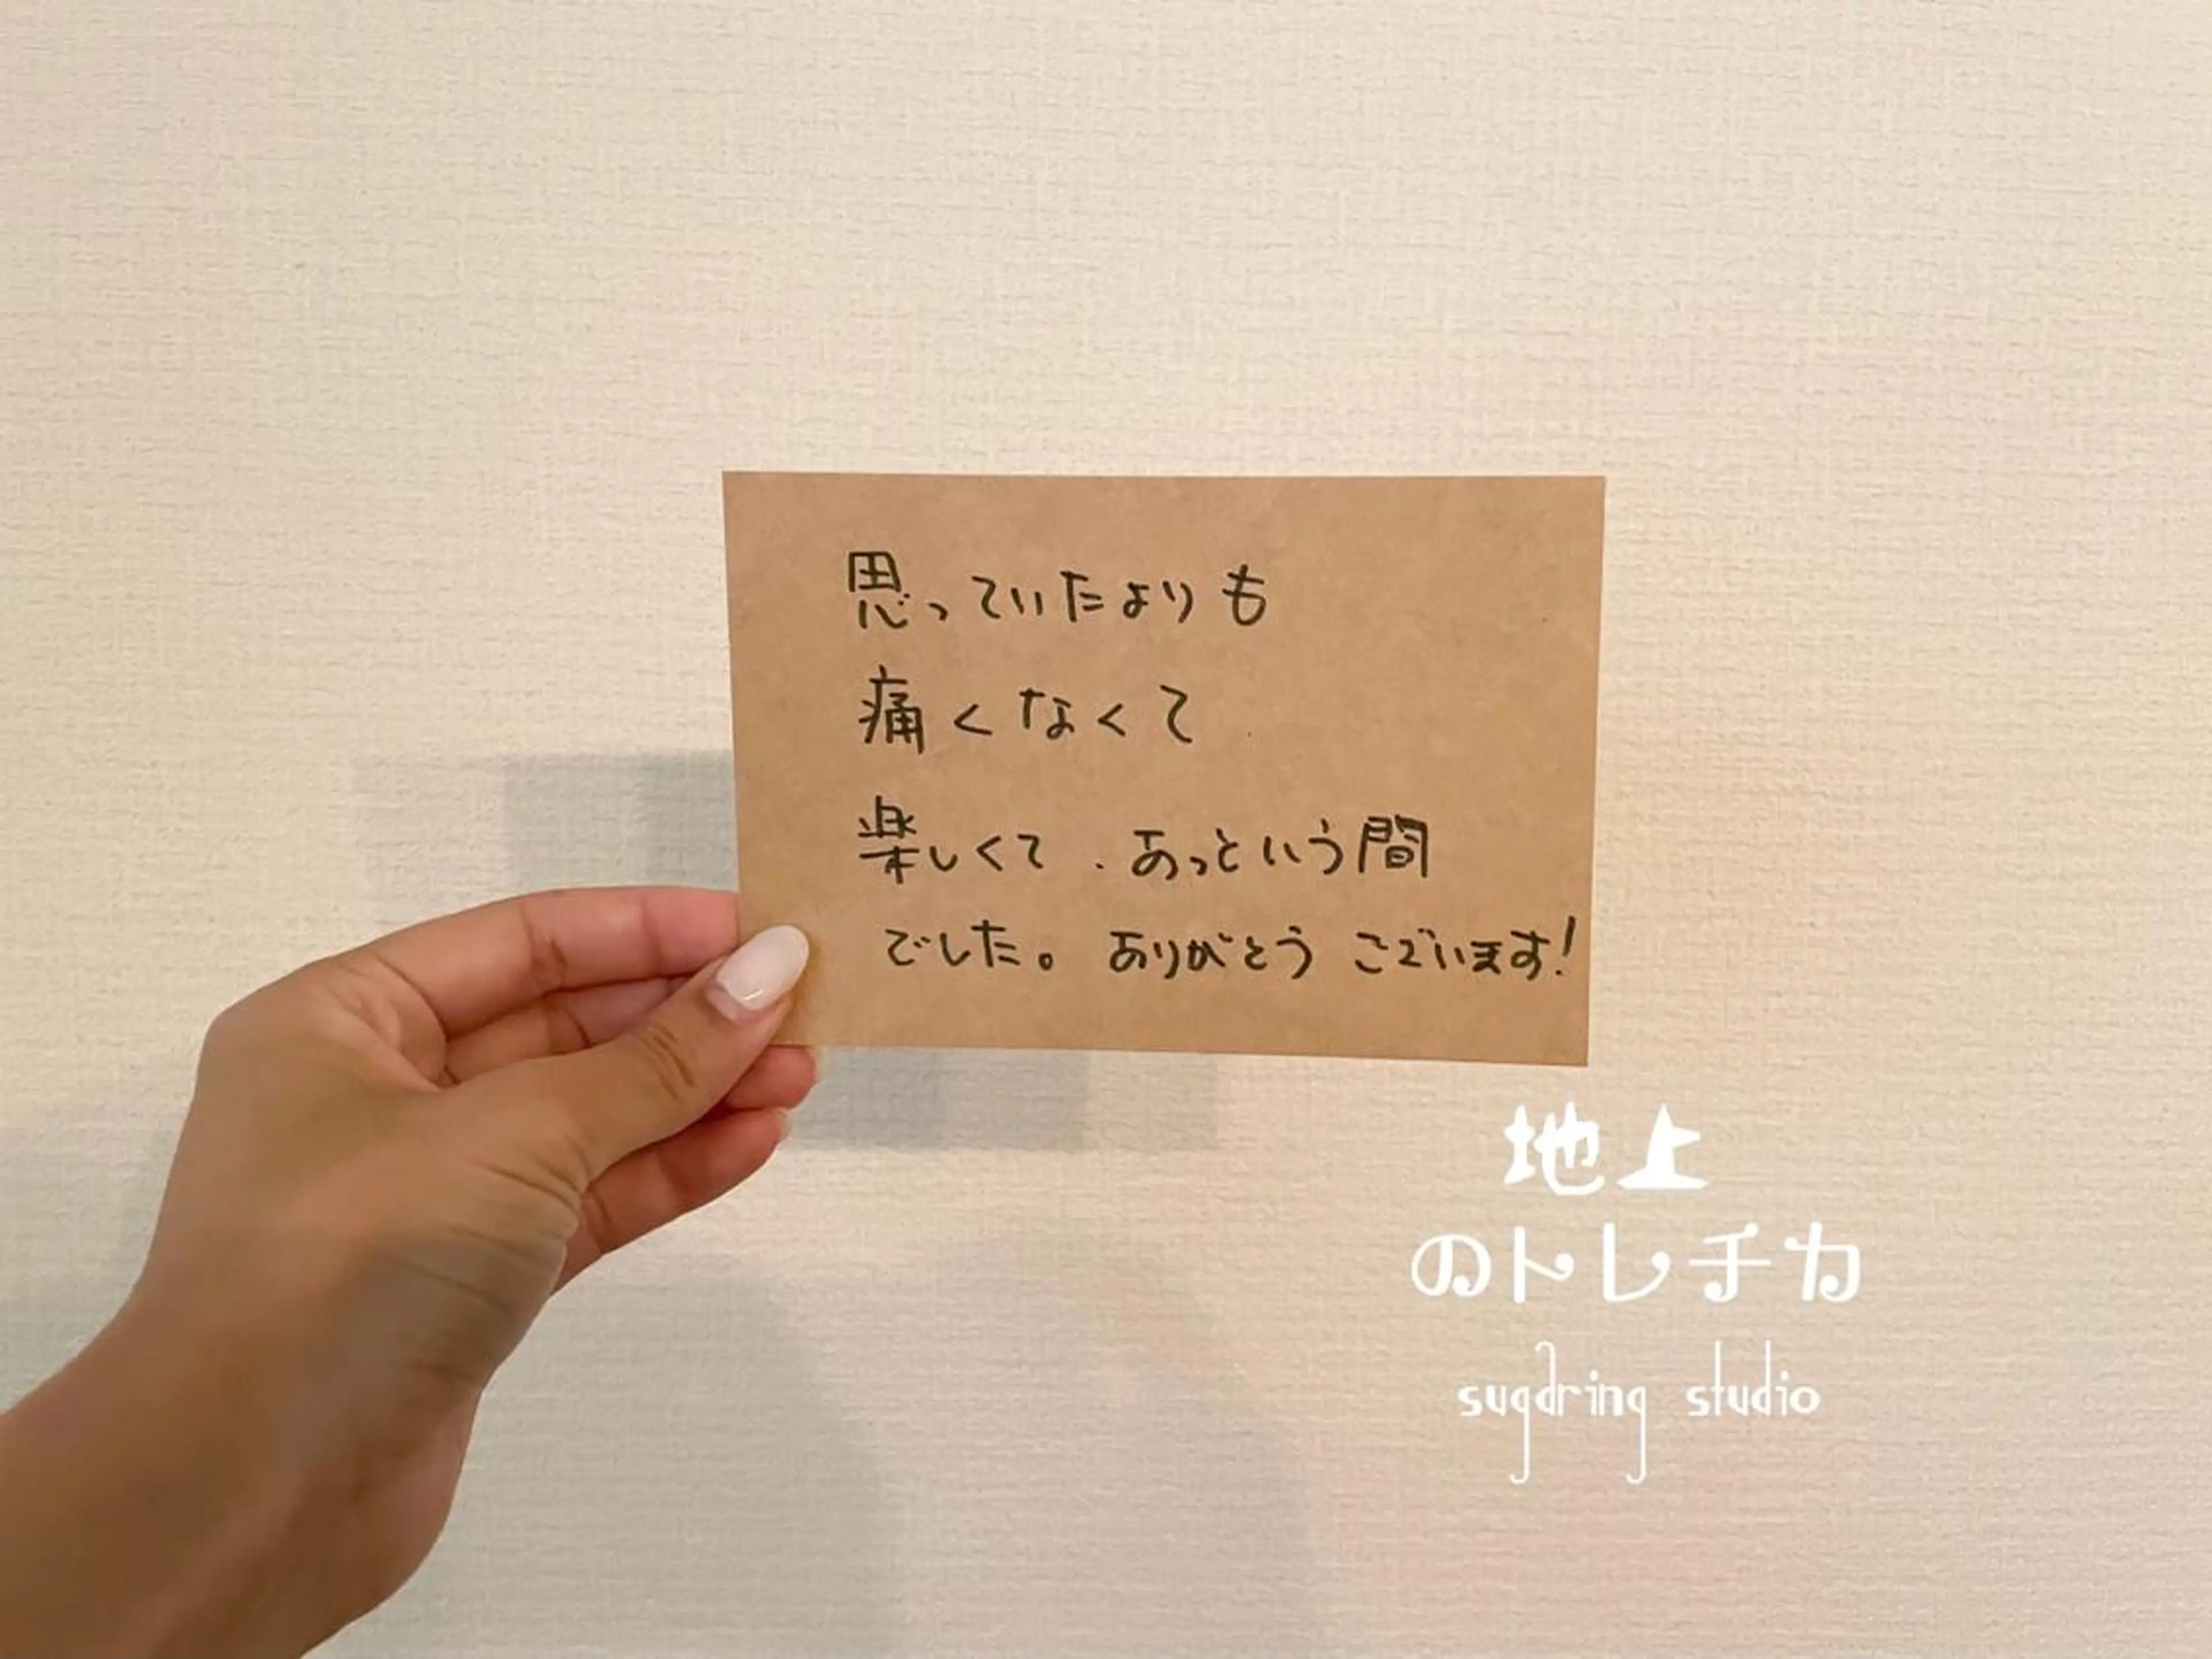 思っていたよりも
痛くなくて
楽しくて、あっという間
でした。ありがとうございます!
地上
のトレチカ
sugdring studio